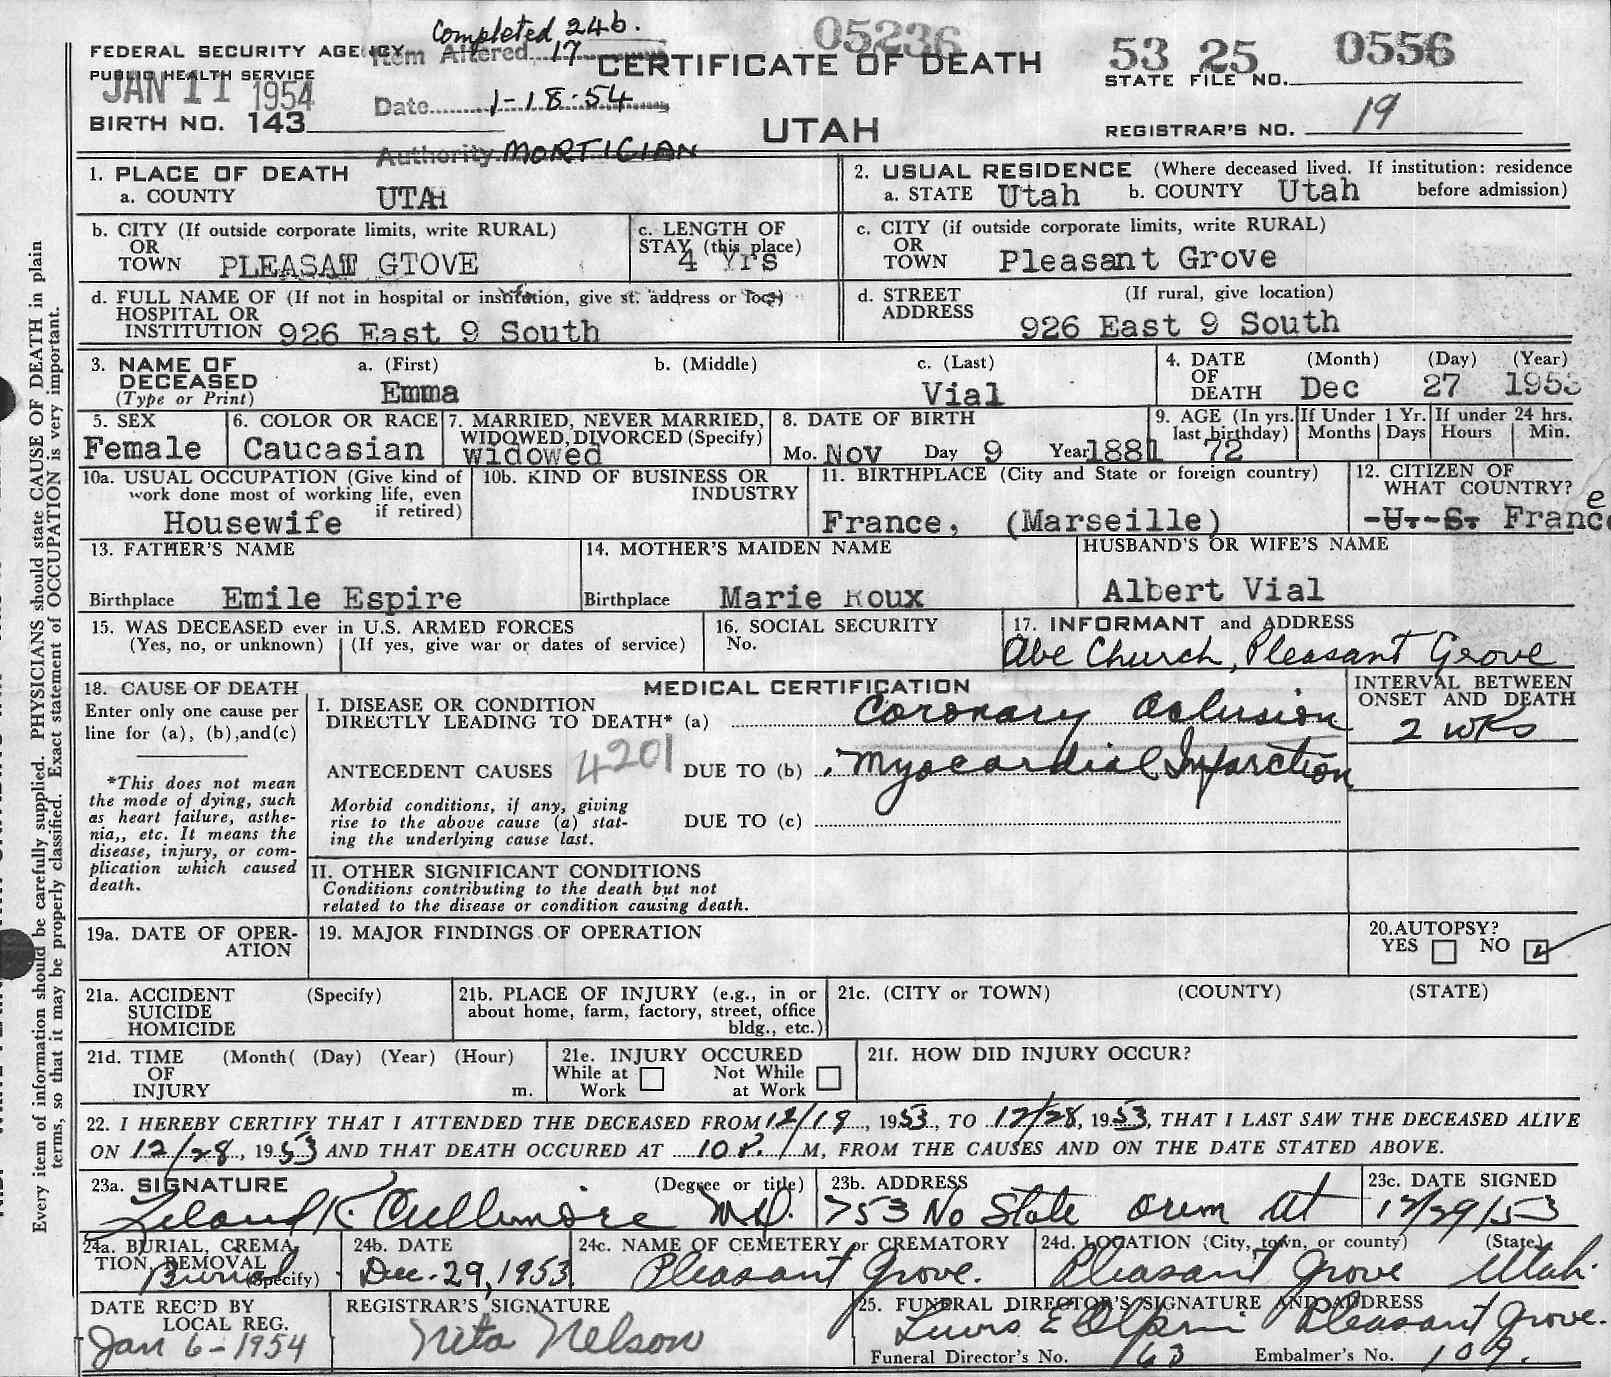 Completed 24b.
05236
FEDERAL SECURITY AGENCY
Item Altered 17
CERTIFICATE OF DEATH
53 25 0556
PUBLIC HEALTH SERVICE
STATE FILE NO.
JAN 11 1954
Date 1-18-54
BIRTH NO. 143
UTAH
REGISTRAR'S NO. 19
Authority MORTICIAN
1. PLACE OF DEATH
a. COUNTY UTAH
2. USUAL RESIDENCE (Where deceased lived. If institution: residence before admission)
a. STATE Utah b. COUNTY Utah
b. CITY (If outside corporate limits, write RURAL)
OR
TOWN PLEASAT GTOVE
c. LENGTH OF
STAY (this place)
4 Yrs
c. CITY (if outside corporate limits, write RURAL)
OR
TOWN Pleasant Grove
d. FULL NAME OF (If not in hospital or institution, give st. address or loc.)
HOSPITAL OR
INSTITUTION 926 East 9 South
d. STREET (If rural, give location)
ADDRESS 926 East 9 South
3. NAME OF DECEASED (Type or Print)
a. (First) b. (Middle) c. (Last)
Emma Vial
4. DATE OF DEATH (Month) (Day) (Year)
Dec 27 1953
5. SEX
Female
6. COLOR OR RACE
Caucasian
7. MARRIED, NEVER MARRIED,
WIDOWED, DIVORCED (Specify)
widowed
8. DATE OF BIRTH
Mo. Nov Day 9 Year 1881
9. AGE (In yrs. last birthday)
72
If Under 1 Yr. Months Days
If under 24 hrs. Hours Min.
10a. USUAL OCCUPATION (Give kind of
work done most of working life, even
if retired)
Housewife
10b. KIND OF BUSINESS OR
INDUSTRY
11. BIRTHPLACE (City and State or foreign country)
France, (Marseille)
12. CITIZEN OF
WHAT COUNTRY?
-U.-S. France
13. FATHER'S NAME
Birthplace Emile Espire
14. MOTHER'S MAIDEN NAME
Birthplace Marie Roux
HUSBAND'S OR WIFE'S NAME
Albert Vial
15. WAS DECEASED ever in U.S. ARMED FORCES
(Yes, no, or unknown) (If yes, give war or dates of service)
16. SOCIAL SECURITY
No.
17. INFORMANT and ADDRESS
Abe Church, Pleasant Grove
18. CAUSE OF DEATH
Enter only one cause per
line for (a), (b),and(c)
*This does not mean
the mode of dying, such
as heart failure, asthe-
nia,, etc. It means the
disease, injury, or com-
plication which caused
death.
MEDICAL CERTIFICATION
I. DISEASE OR CONDITION
DIRECTLY LEADING TO DEATH* (a) Coronary Oclusion
INTERVAL BETWEEN
ONSET AND DEATH
2 wks
ANTECEDENT CAUSES 4201 DUE TO (b) Myocardial Infarction
Morbid conditions, if any, giving
rise to the above cause (a) stat-
ing the underlying cause last.
DUE TO (c)
II. OTHER SIGNIFICANT CONDITIONS
Conditions contributing to the death but not
related to the disease or condition causing death.
19a. DATE OF OPER-
ATION
19. MAJOR FINDINGS OF OPERATION
20. AUTOPSY?
YES NO
21a. ACCIDENT (Specify)
SUICIDE
HOMICIDE
21b. PLACE OF INJURY (e.g., in or
about home, farm, factory, street, office
bldg., etc.)
21c. (CITY or TOWN) (COUNTY) (STATE)
21d. TIME (Month( (Day) (Year) (Hour)
OF
INJURY m.
21e. INJURY OCCURED
While at Work Not While at Work
21f. HOW DID INJURY OCCUR?
22. I HEREBY CERTIFY THAT I ATTENDED THE DECEASED FROM 12/19, 1953, TO 12/28, 1953, THAT I LAST SAW THE DECEASED ALIVE
ON 12/28, 1953 AND THAT DEATH OCCURED AT 10 P. M, FROM THE CAUSES AND ON THE DATE STATED ABOVE.
23a. SIGNATURE (Degree or title)
Leland K. Cullimore M.D.
23b. ADDRESS
753 No State Orem Ut
23c. DATE SIGNED
12/29/53
24a. BURIAL, CREMA
TION, REMOVAL
(Specify)
Burial
24b. DATE
Dec. 29, 1953
24c. NAME OF CEMETERY or CREMATORY
Pleasant Grove.
24d. LOCATION (City, town, or county) (State)
Pleasant Grove Utah.
DATE REC'D BY
LOCAL REG.
Jan 6-1954
REGISTRAR'S SIGNATURE
Nita Nelson
25. FUNERAL DIRECTOR'S SIGNATURE AND ADDRESS
Lewis E Olpin Pleasant Grove.
Funeral Director's No. 163 Embalmer's No. 109.
Every item of information should be carefully supplied. PHYSICIANS should state CAUSE OF DEATH in plain
terms, so that it may be properly classified. Exact statement of OCCUPATION is very important.